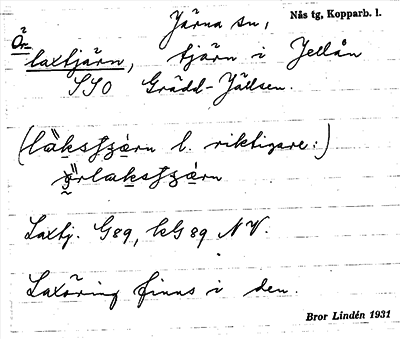 Järna sn,
Nås tg, Kopparb. l.
Ör-
laxtjärn, tjärn i Jellån
SSO Grädd-Jällsen.
(la̤ksʃʒæ̣rn l. riktigare:)
ərlaksʃʒæ̣rn
Laxtj. G89, kG89 NV.
Laxöring finns i den.
Bror Lindén 1931